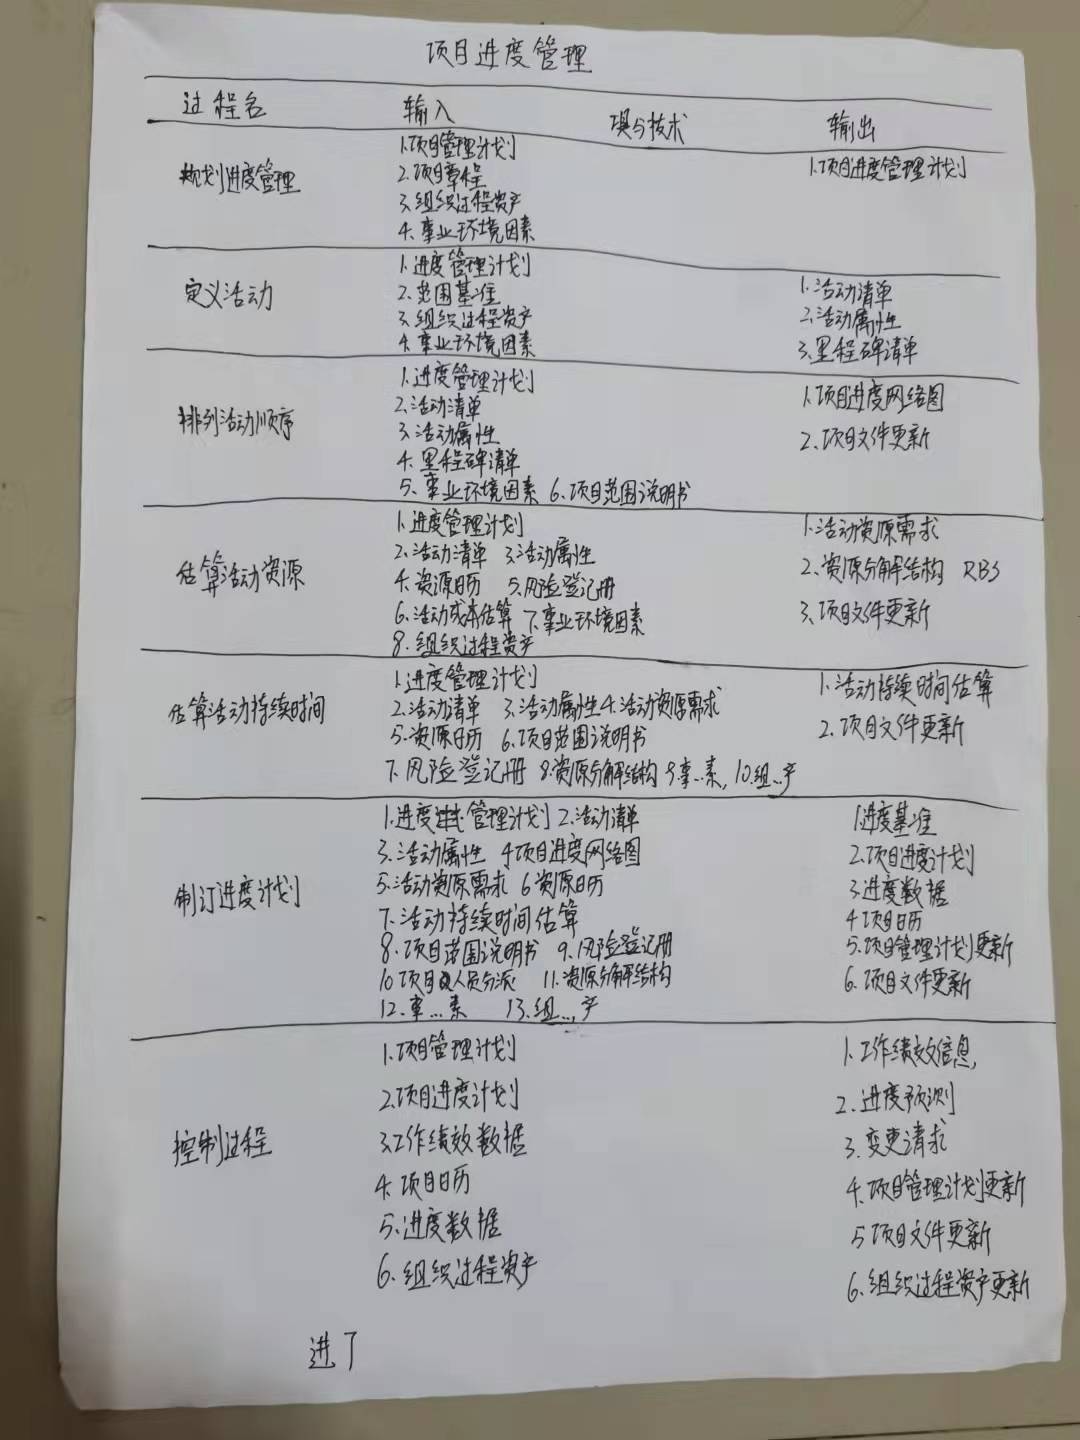 项目进度管理
过程名 输入 具与技术 输出
规划进度管理
1.项目管理计划
2.项目章程
3.组织过程资产
4.事业环境因素
1.项目进度管理计划
定义活动
1.进度管理计划
2.范围基准
3.组织过程资产
4.事业环境因素
1.活动清单
2.活动属性
3.里程碑清单
排列活动顺序
1.进度管理计划
2.活动清单
3.活动属性
4.里程碑清单
5.事业环境因素 6.项目范围说明书
1.项目进度网络图
2.项目文件更新
估算活动资源
1.进度管理计划
2.活动清单 3.活动属性
4.资源日历 5.风险登记册
6.活动成本估算 7.事业环境因素
8.组织过程资产
1.活动资源需求
2.资源分解结构 RBS
3.项目文件更新
估算活动持续时间
1.进度管理计划
2.活动清单 3.活动属性 4.活动资源需求
5.资源日历 6.项目范围说明书
7.风险登记册 8.资源分解结构 9.事...素, 10.组...产
1.活动持续时间估算
2.项目文件更新
制订进度计划
1.进度管理计划 2.活动清单
3.活动属性 4项目进度网络图
5.活动资源需求 6资源日历
7.活动持续时间估算
8.项目范围说明书 9.风险登记册
10项目人员分派 11.资源分解结构
12.事...素 13.组...产
1.进度基准
2.项目进度计划
3.进度数据
4项目日历
5.项目管理计划更新
6.项目文件更新
控制过程
1.项目管理计划
2.项目进度计划
3.工作绩效数据
4.项目日历
5.进度数据
6.组织过程资产
1.工作绩效信息,
2.进度预测
3.变更请求
4.项目管理计划更新
5项目文件更新
6.组织过程资产更新
进了